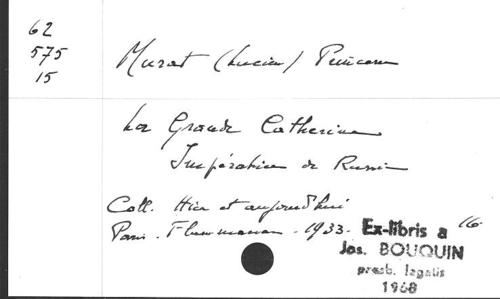 62
575
15
Murat (Lucien) Princesse
La Grande Catherine
Impératrice de Russie
Coll. Hier et aujourd'hui
Paris. Flammarion. 1933. 16°
Ex-libris a
Jos. BOUQUIN
presb. legatis
1968